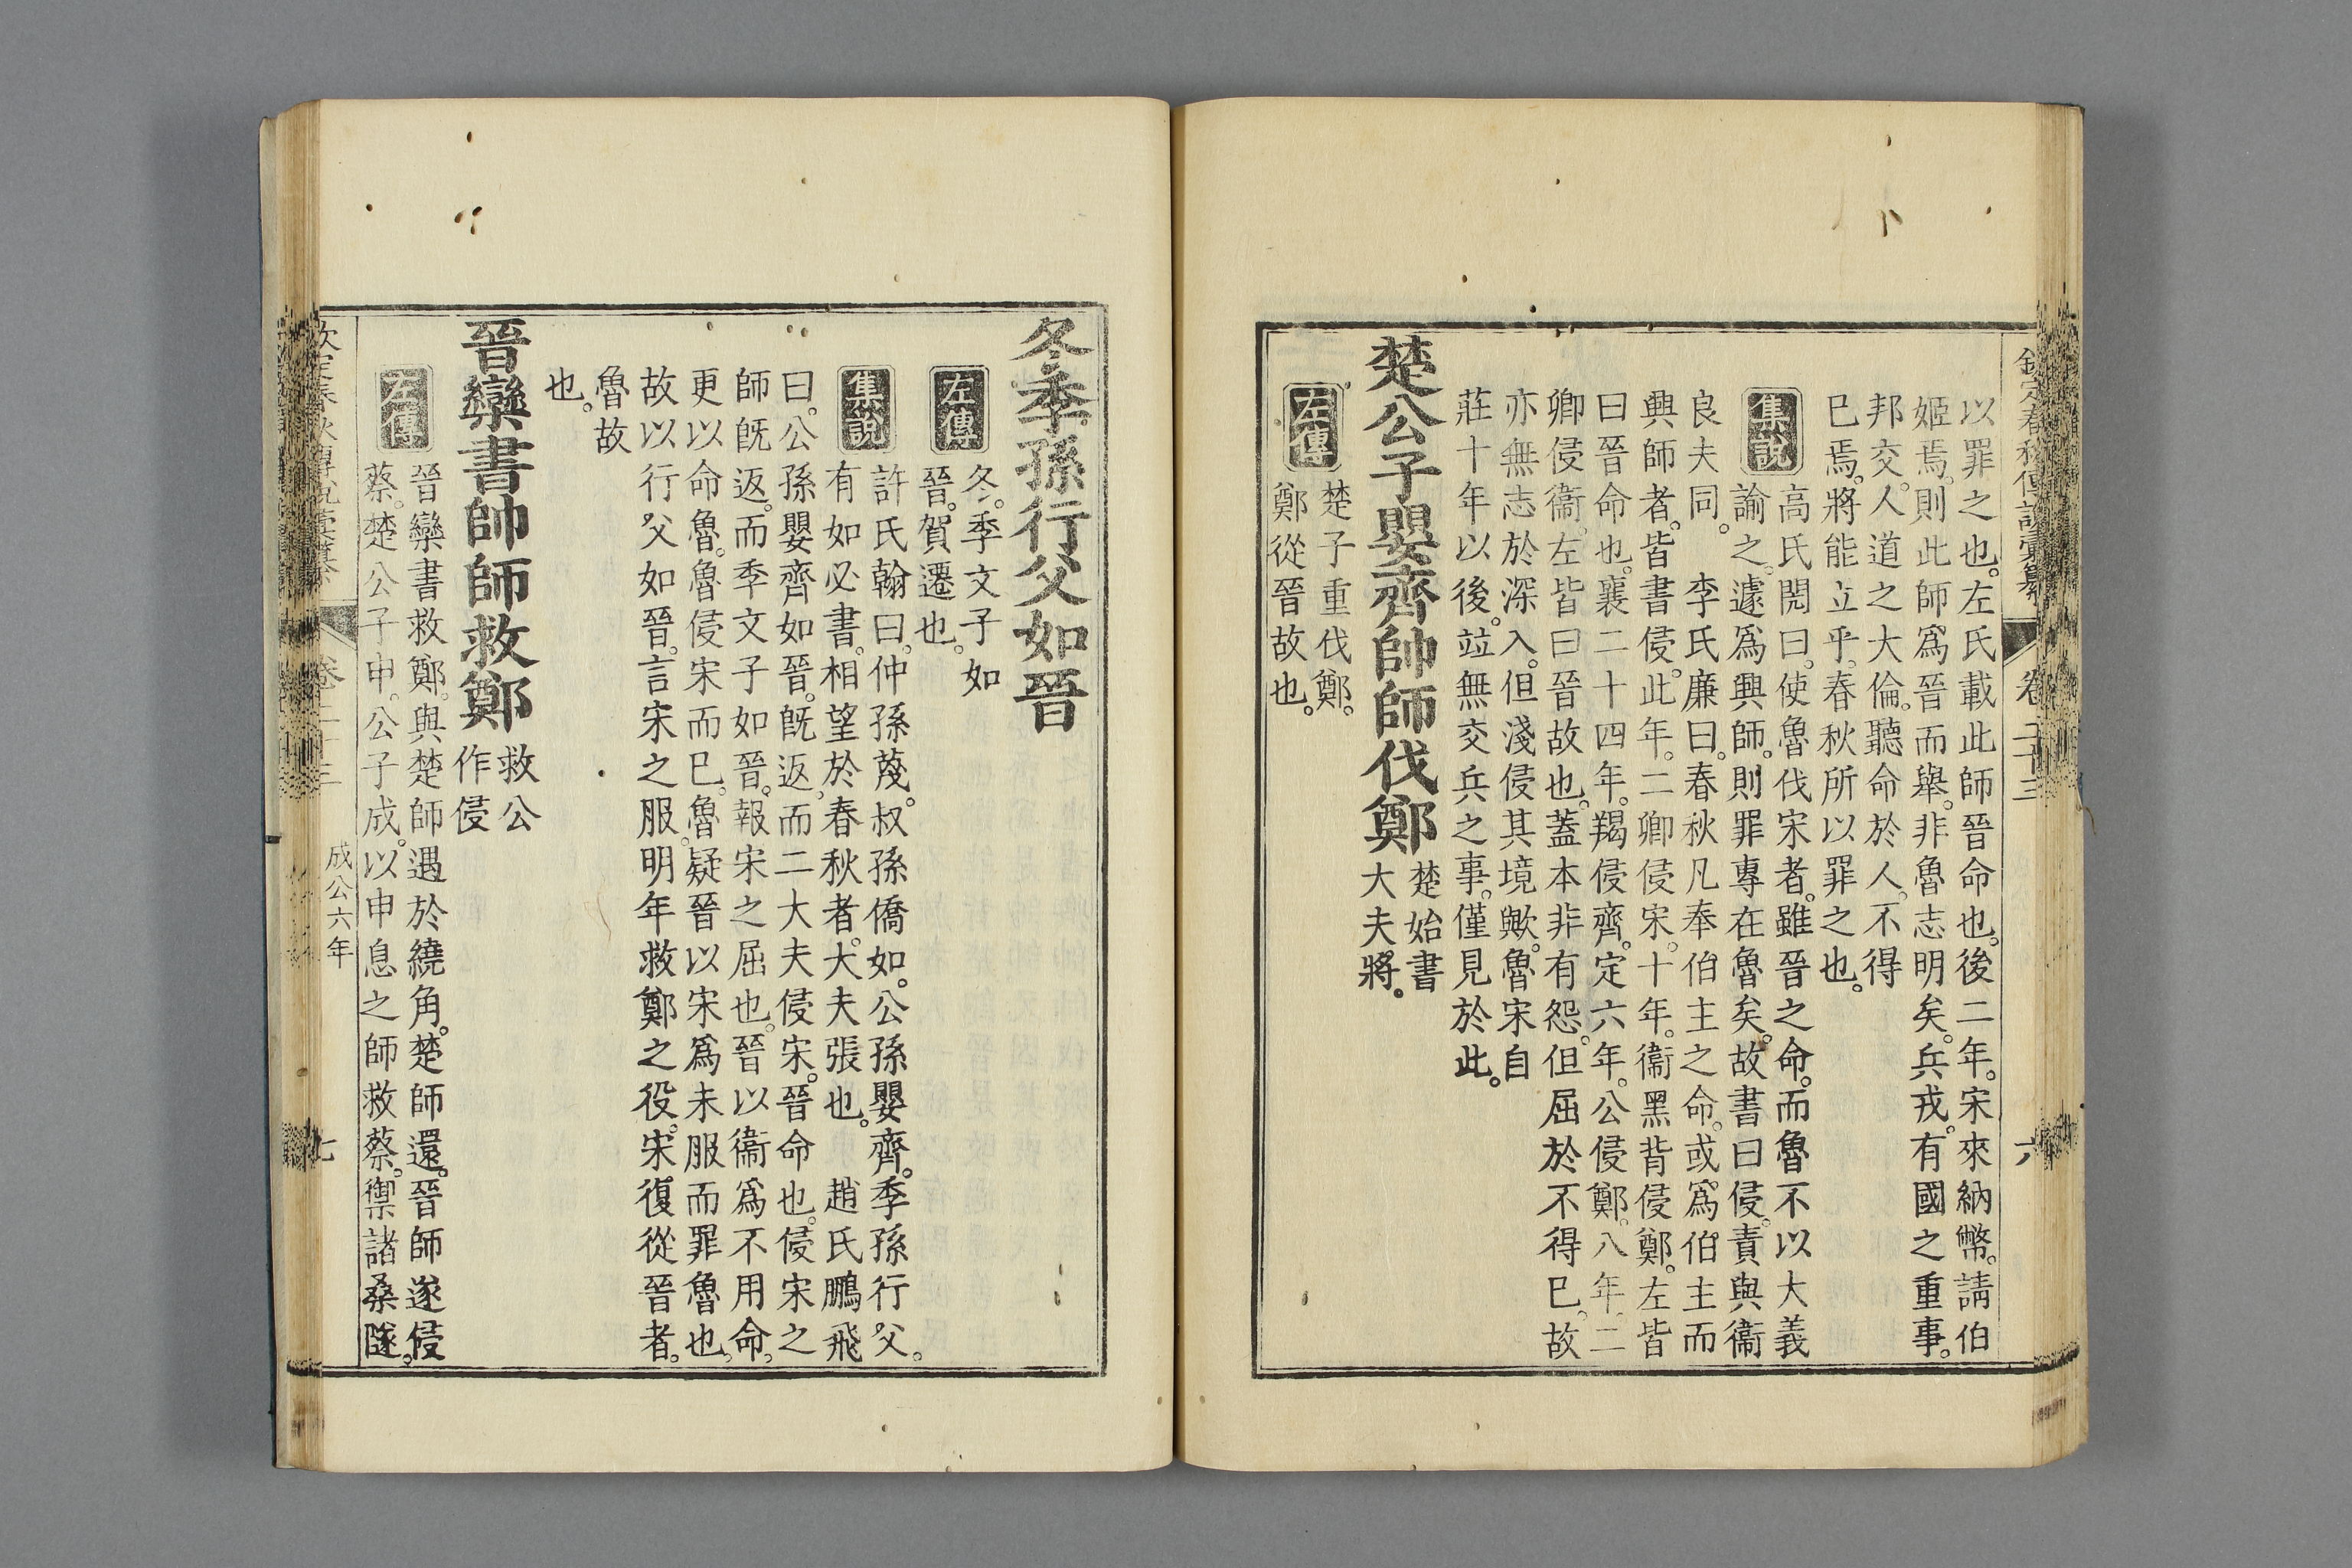 欽定春秋傳說彙纂 卷二十三 六
以罪之也。左氏載此師晉命也。後二年。宋來納幣。請伯
姬焉。則此師爲晉而舉。非魯志明矣。兵戎。有國之重事。
邦交。人道之大倫。聽命於人。不得
已焉。將能立乎。春秋所以罪之也。
集說
高氏閌曰。使魯伐宋者。雖晉之命。而魯不以大義
諭之。遽爲興師。則罪專在魯矣。故書曰侵。責與衞
良夫同。 李氏廉曰。春秋凡奉伯主之命。或爲伯主而
興師者。皆書侵。此年。二卿侵宋。十年。衞黑背侵鄭。左皆
曰晉命也。襄二十四年。羯侵齊。定六年。公侵鄭。八年。二
卿侵衞。左皆曰晉故也。蓋本非有怨。但屈於不得已。故
亦無志於深入。但淺侵其境歟。魯宋自
莊十年以後。竝無交兵之事。僅見於此。
楚公子嬰齊帥師伐鄭
楚始書
大夫將。
左傳
楚子重伐鄭。
鄭從晉故也。
冬季孫行父如晉
左傳
冬。季文子如
晉。賀遷也。
集說
許氏翰曰。仲孫蔑。叔孫僑如。公孫嬰齊。季孫行父。
有如必書。相望於春秋者。大夫張也。 趙氏鵬飛
曰。公孫嬰齊如晉。旣返。而二大夫侵宋。晉命也。侵宋之
師旣返。而季文子如晉。報宋之屈也。晉以衞爲不用命。
更以命魯。魯侵宋而已。魯疑晉以宋爲未服而罪魯也。
故以行父如晉。言宋之服。明年救鄭之役。宋復從晉者。
魯故
也。
晉欒書帥師救鄭
救公
作侵
左傳
晉欒書救鄭。與楚師遇於繞角。楚師還。晉師遂侵
蔡。楚公子申。公子成。以申息之師救蔡。禦諸桑隧。
欽定春秋傳說彙纂 卷二十三 成公六年 七